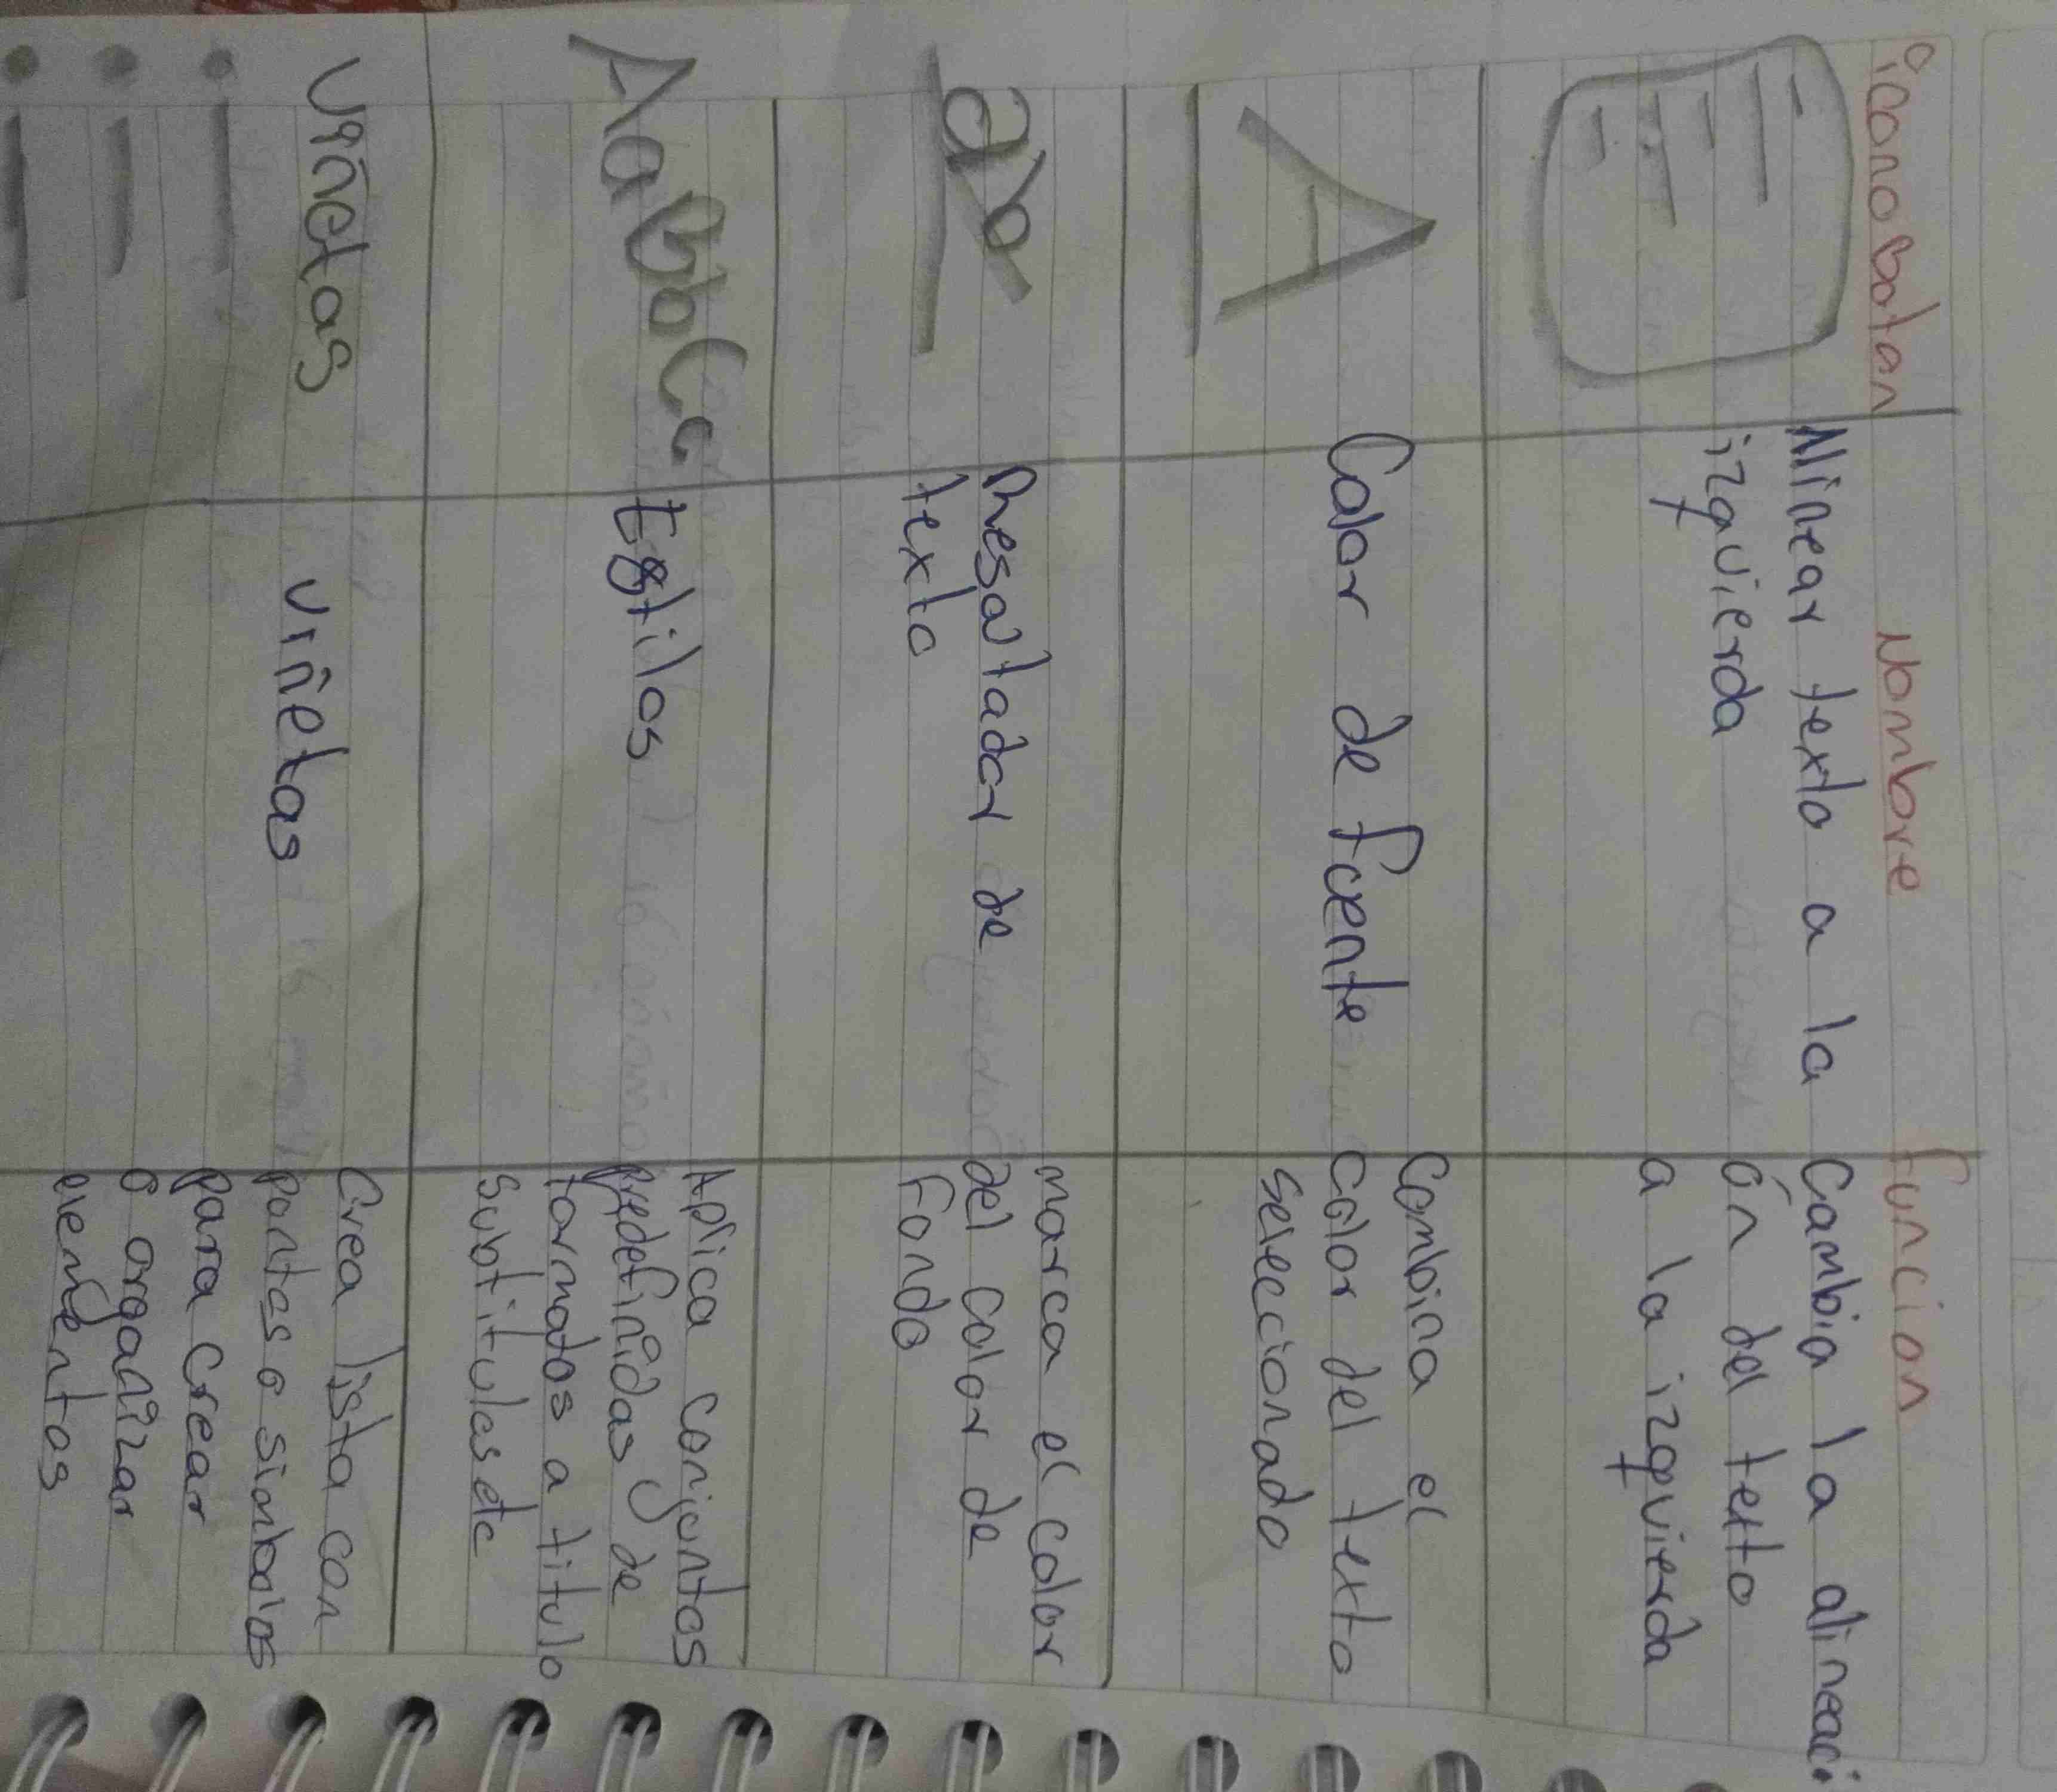 iconoBotan
Nombre
funcion
Alinear texto a la
izquierda
Cambia la alineaci
ón del texto
a la izquierda
A
Color de fuente
Combina el
color del texto
seleccionado
ab
Resaltador de
texto
marca el color
del color de
Fondo
AaBbCc
Estilos
Aplica conjuntos
predefinidas de
formatos a titulo
subtitulos etc
Viñetas
viñetas
Crea lista con
puntos o simbolos
para crear
o organizar
elementos